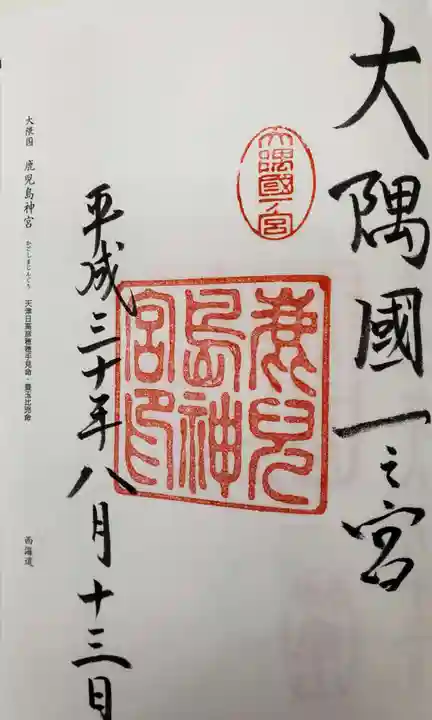 大隅國一之宮
大隅國一ノ宮
鹿兒
島神
宮印
平成三十年八月十三日
大隅国 鹿児島神宮 かごしまじんぐう 天津日高彦穂穂出見命・豊玉比売命
西海道